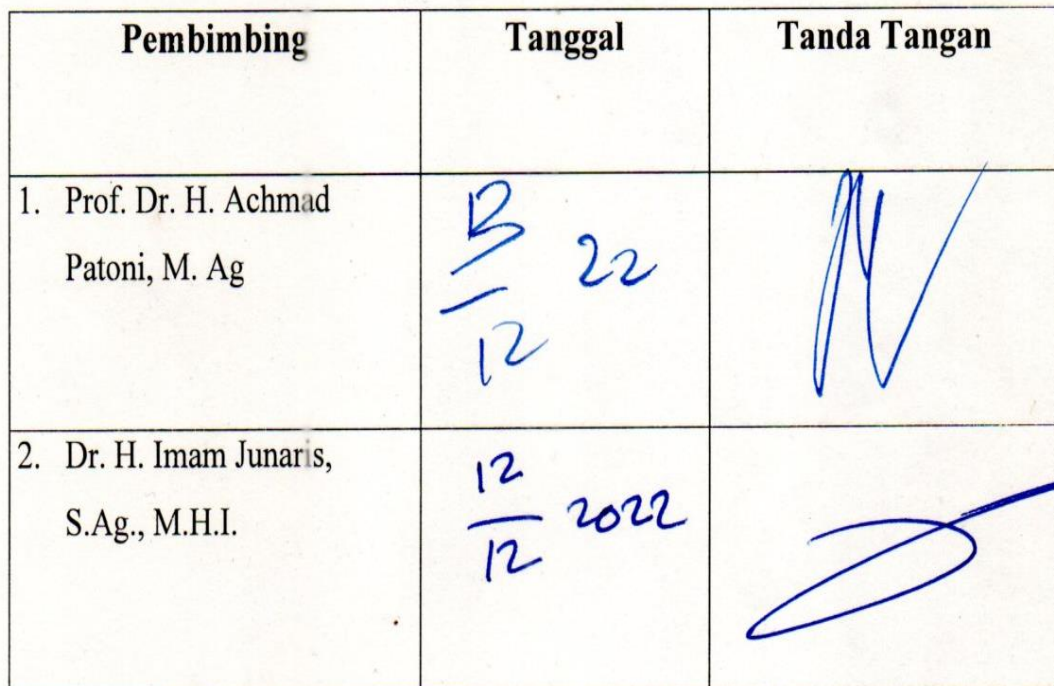 Pembimbing Tanggal Tanda Tangan
1. Prof. Dr. H. Achmad
Patoni, M. Ag
22
12
2. Dr. H. Imam Junaris,
S.Ag., M.H.I.
12
12 2022